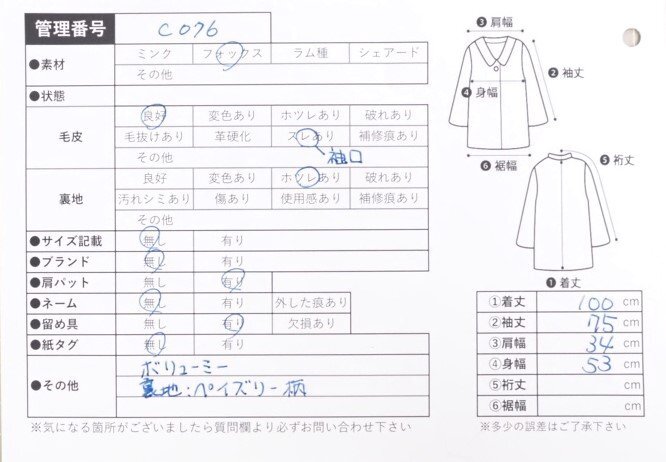 管理番号 C076
●素材 ミンク フォックス ラム種 シェアード
その他
●状態
毛皮 良好 変色あり ホツレあり 破れあり
毛抜けあり 革硬化 スレあり 補修痕あり
その他 袖口
裏地 良好 変色あり ホツレあり 破れあり
汚れシミあり 傷あり 使用感あり 補修痕あり
その他
●サイズ記載 無し 有り
●ブランド 無し 有り
●肩パット 無し 有り
●ネーム 無し 有り 外した痕あり
●留め具 無し 有り 欠損あり
●紙タグ 無し 有り
●その他 ボリューミー
裏地:ペイズリー柄
※気になる箇所がございましたら質問欄より必ずお問い合わせ下さい
❸肩幅
❷袖丈
❹身幅
❻裾幅
❺裄丈
❶着丈
①着丈 100 cm
②袖丈 75 cm
③肩幅 34 cm
④身幅 53 cm
⑤裄丈 cm
⑥裾幅 cm
※多少の誤差はご了承下さい